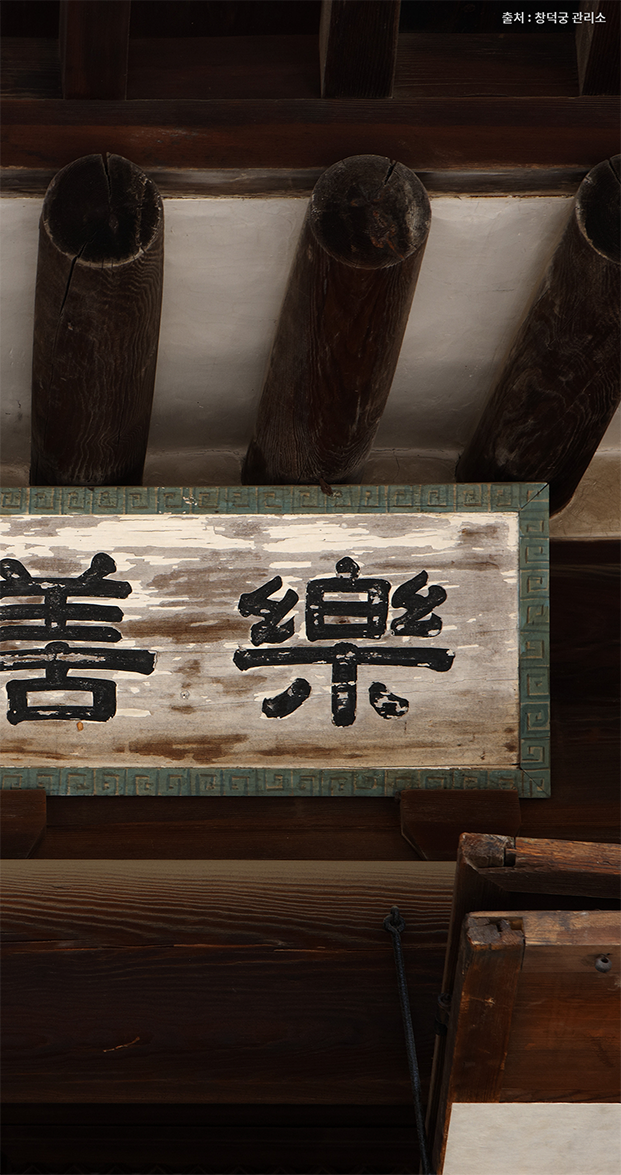 출처 : 창덕궁 관리소
樂善